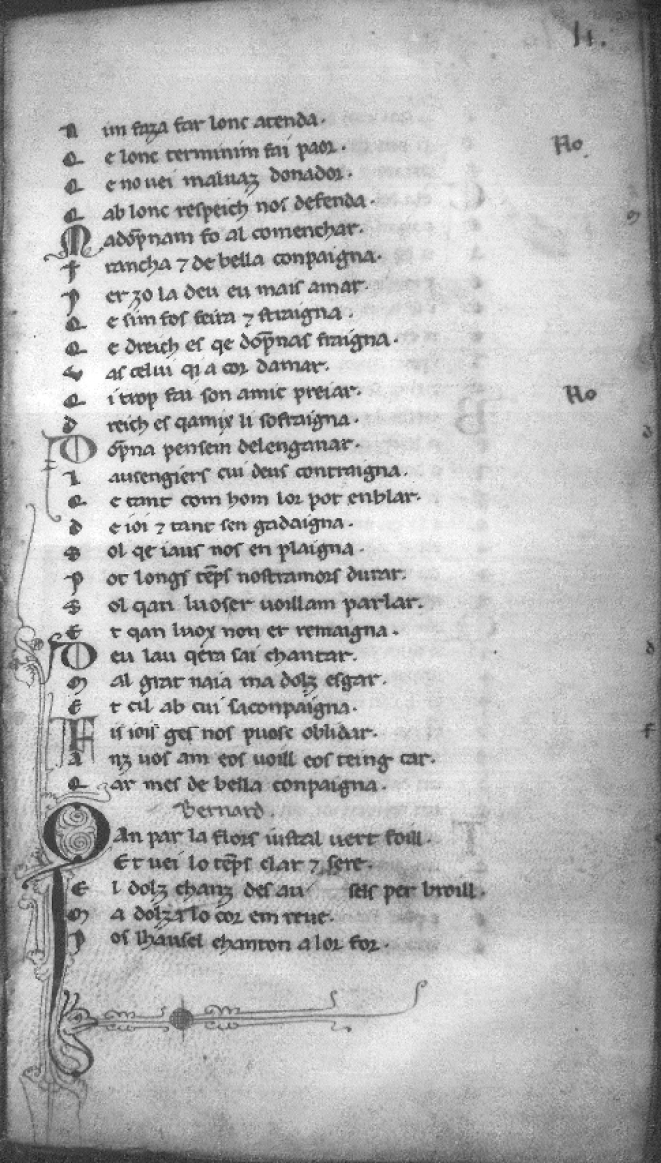 11.
N im faza far lonc atenda.
Q e lonc terminim fai paor.
No.
Q e no uei maluaz donador.
Q ab lonc respeich nos defenda.
M adop̄nam fo al comenchar.
F rancha ⁊ de bella conpaigna.
P er zo la deu eu mais amar.
Q e sim fos feira ⁊ straigna.
Q e dreich es qe dop̄nas fraigna.
V as celui qi a cor damar.
Q i trop fai son amic preiar.
No
D reich es qamix li sofraigna.
D op̄na pensem delenganar.
L ausengiers cui deus contraigna.
Q e tant com hom lor pot enblar.
D e ioi ⁊ tant sen gadaigna.
S ol qe iaus nos en plaigna.
P ot longs tēps nostramors durar.
S ol qan luoser uoillam parlar.
E t qan luox non er remaigna.
D eu lau qēra sai chantar.
M al grat naia ma dolz esgar.
E t cil ab cui saconpaigna.
F is iois ges nos puosc oblidar.
A nz uos am eos uoill eos teing car.
Q ar mes de bella conpaigna.
Bernard.
Q An par la flors iustal uert foill.
Et uei lo tēps clar ⁊ sere.
E l dolz chanz des au sels per broill.
M a dolza lo cor em reue.
P os lhausel chanton a lor for.